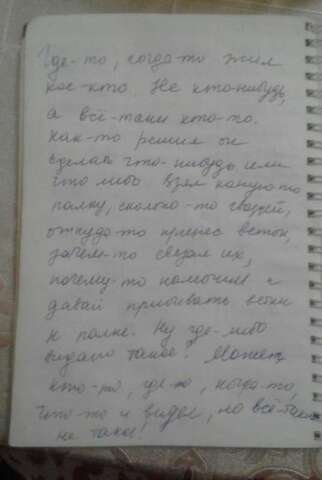 Где-то, когда-то жил
кое-кто. Не кто-нибудь,
а всё-таки кто-то.
Как-то решил он
сделать что-нибудь или
что либо взял какую-то
палку, сколько-то гвоздей,
откуда-то принес веток,
зачем-то связал их,
почему-то намочил и
давай прибивать ветки
к палке. Ну где-либо
видано такое! Может
кто-то, где-то, когда-то,
что-то и видел, но всё-таки
не такое!